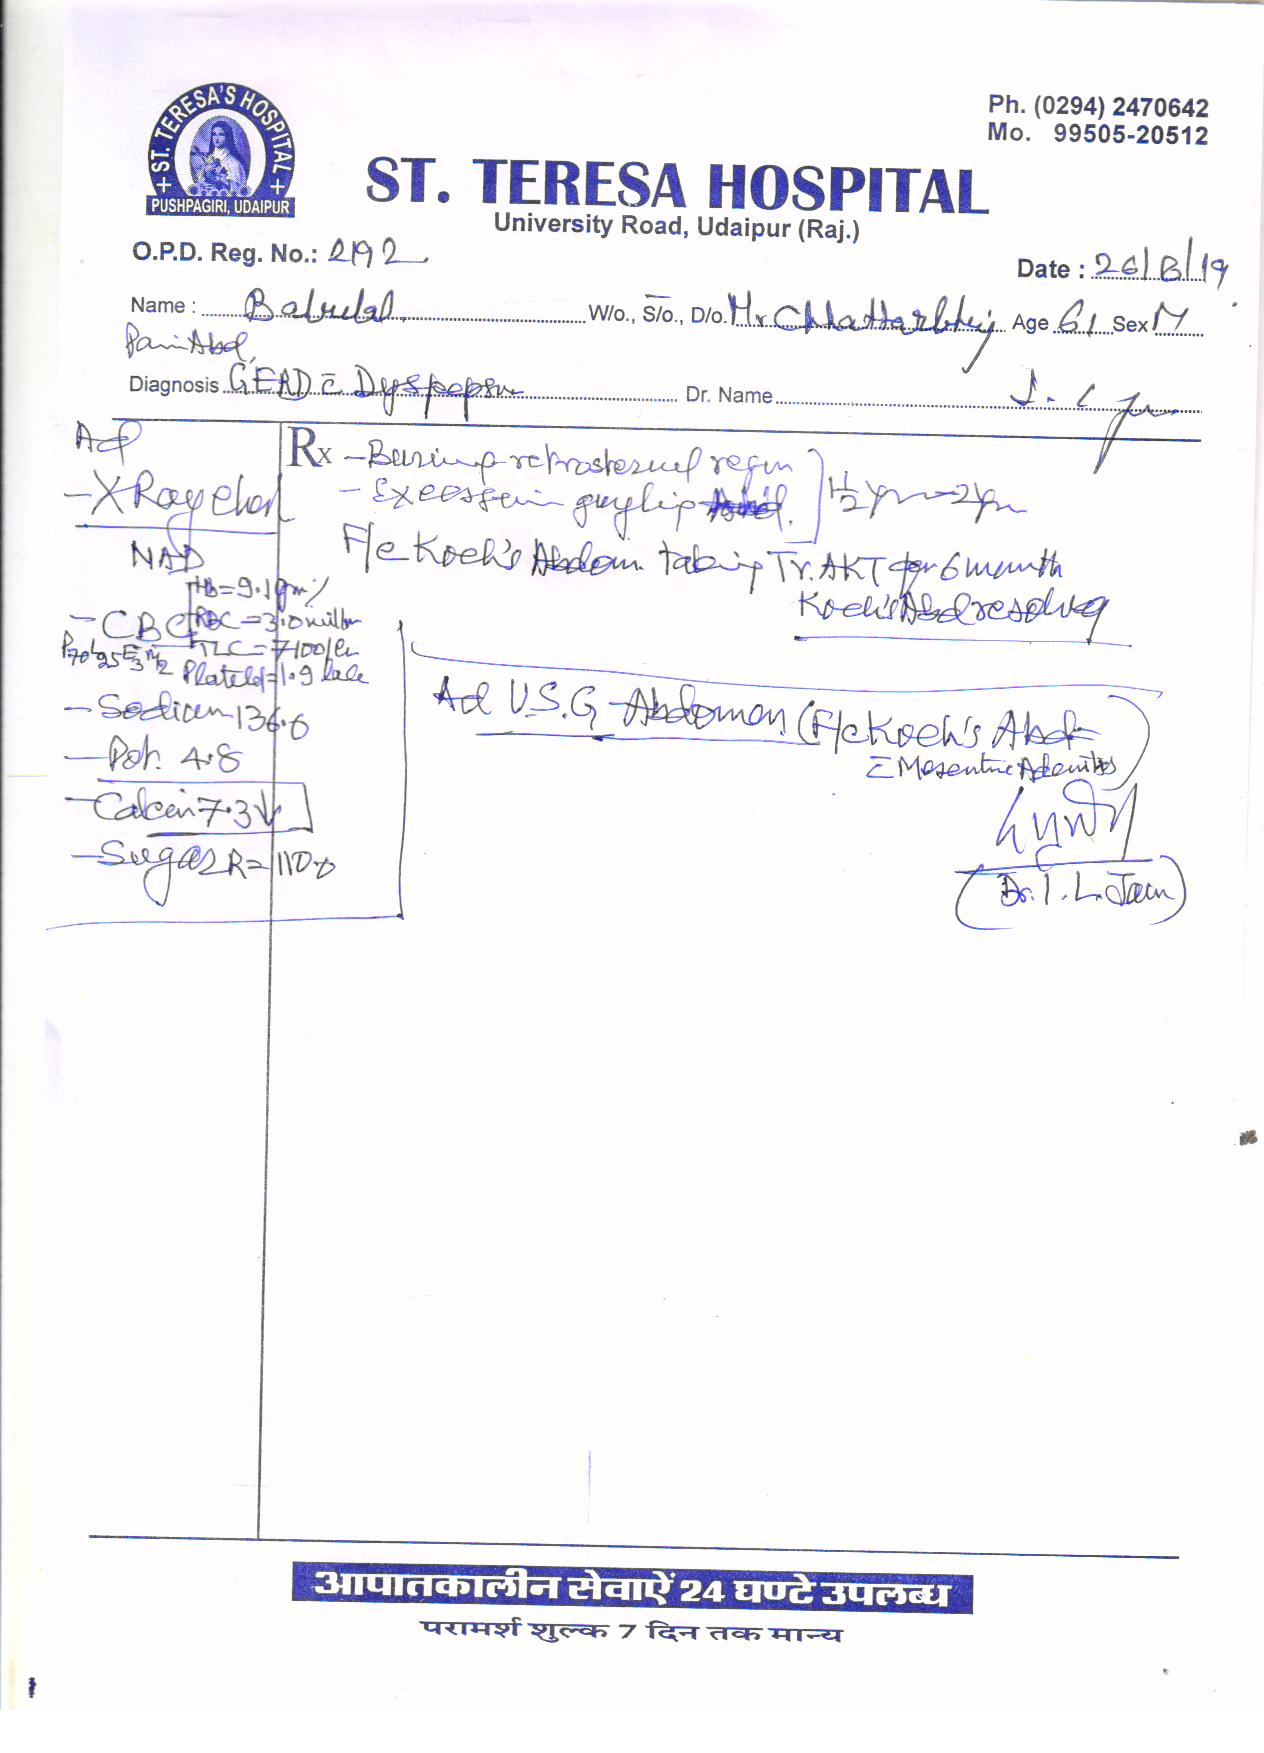 ST. TERESA'S HOSPITAL
PUSHPAGIRI, UDAIPUR
Ph. (0294) 2470642
Mo. 99505-20512
ST. TERESA HOSPITAL
University Road, Udaipur (Raj.)
O.P.D. Reg. No.: 2192
Date : 26/8/19
Name : Babulal W/o., S/o., D/o. Mr Chhattarbhuj Age 61 Sex M
Pain Abd,
Diagnosis GERD c̄ Dyspepsia Dr. Name
Ad
- X Ray Chest
NAD
Hb = 9.1 gm%
- CBC RBC = 3.0 million
TLC = 7100/
P70 L25 E3 M2 Platelet = 1.9 lac
- Sodium 136.6
- Pot. 4.8
- Calcium 7.3 ↓
- Sugar R = 110
Rx - Burning retrosternal region
- Excessive
1½ yr - 2 yr
F/c Koch's Abdomen taking Tr. AKT for 6 month
Koch's Abd resolving
Ad U.S.G Abdomen (F/c Koch's Abd
c̄ Mesentric Adenitis)
(Dr. I. L. Jain)
आपातकालीन सेवाऐं 24 घण्टे उपलब्ध
परामर्श शुल्क 7 दिन तक मान्य